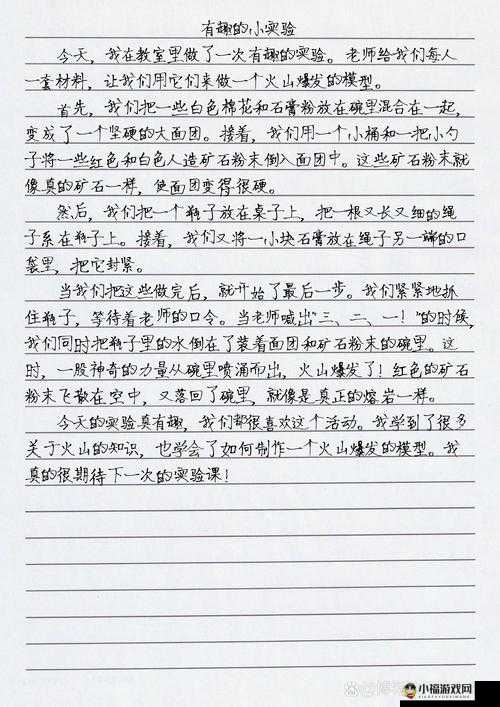 有趣的小实验
今天,我在教室里做了一次有趣的实验。老师给我们每人
一套材料,让我们用它们来做一个火山爆发的模型。
首先,我们把一些白色棉花和石膏粉放在碗里混合在一起,
变成了一个坚硬的大面团。接着,我们用一个小桶和一把小勺
子将一些红色和白色人造矿石粉末倒入面团中。这些矿石粉末就
像真的矿石一样,使面团变得很硬。
然后,我们把一个瓶子放在桌子上,把一根又长又细的绳
子系在瓶子上。接着,我们又将一小块石膏放在绳子另一端的口
袋里,把它封紧。
当我们把这些做完后,就开始了最后一步。我们紧紧地抓
住瓶子,等待着老师的口令。当老师喊出“三、二、一!”的时候,
我们同时把瓶子里的水倒在了装着面团和矿石粉末的碗里。这
时,一股神奇的力量从碗里喷涌而出,火山爆发了!红色的矿石
粉末飞散在空中,又落回了碗里,就像是真正的熔岩一样。
今天的实验真有趣,我们都很喜欢这个活动。我学到了很多
关于火山的知识,也学会了如何制作一个火山爆发的模型。我
真的很期待下一次的实验课!
小福游戏网